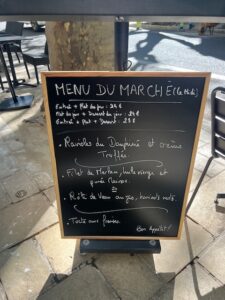 MENU DU MARCHÉ (
Entrée + Plat du jour : 24 €
Plat du jour + Dessert du jour : 24 €
Entrée + Plat + Dessert : 29 €
. Ravioles du Dauphiné et crème
Truffée.
. Filet de merlan, huile vierge et
purée maison.
ou
. Rôti de Veau au jus, haricots verts.
. Tarte aux fraises.
Bon Appétit !